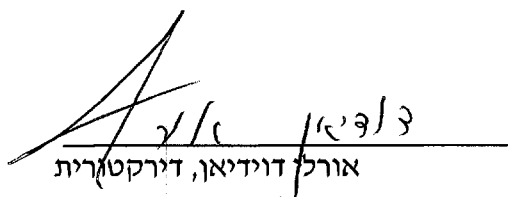 דוידיאן
אורלי דוידיאן, דירקטורית